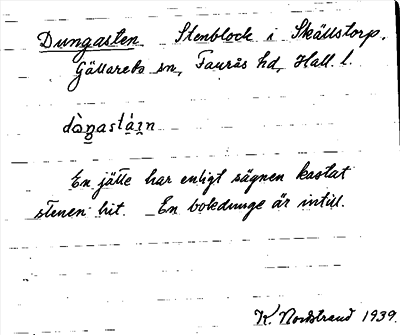 Dungasten Stenblock i Skällstorp,
Gällareds sn, Faurås hd, Hall. l.
En jätte har enligt sägnen kastat
stenen hit. En bokdunge är intill.
K. Nordstrand 1939.